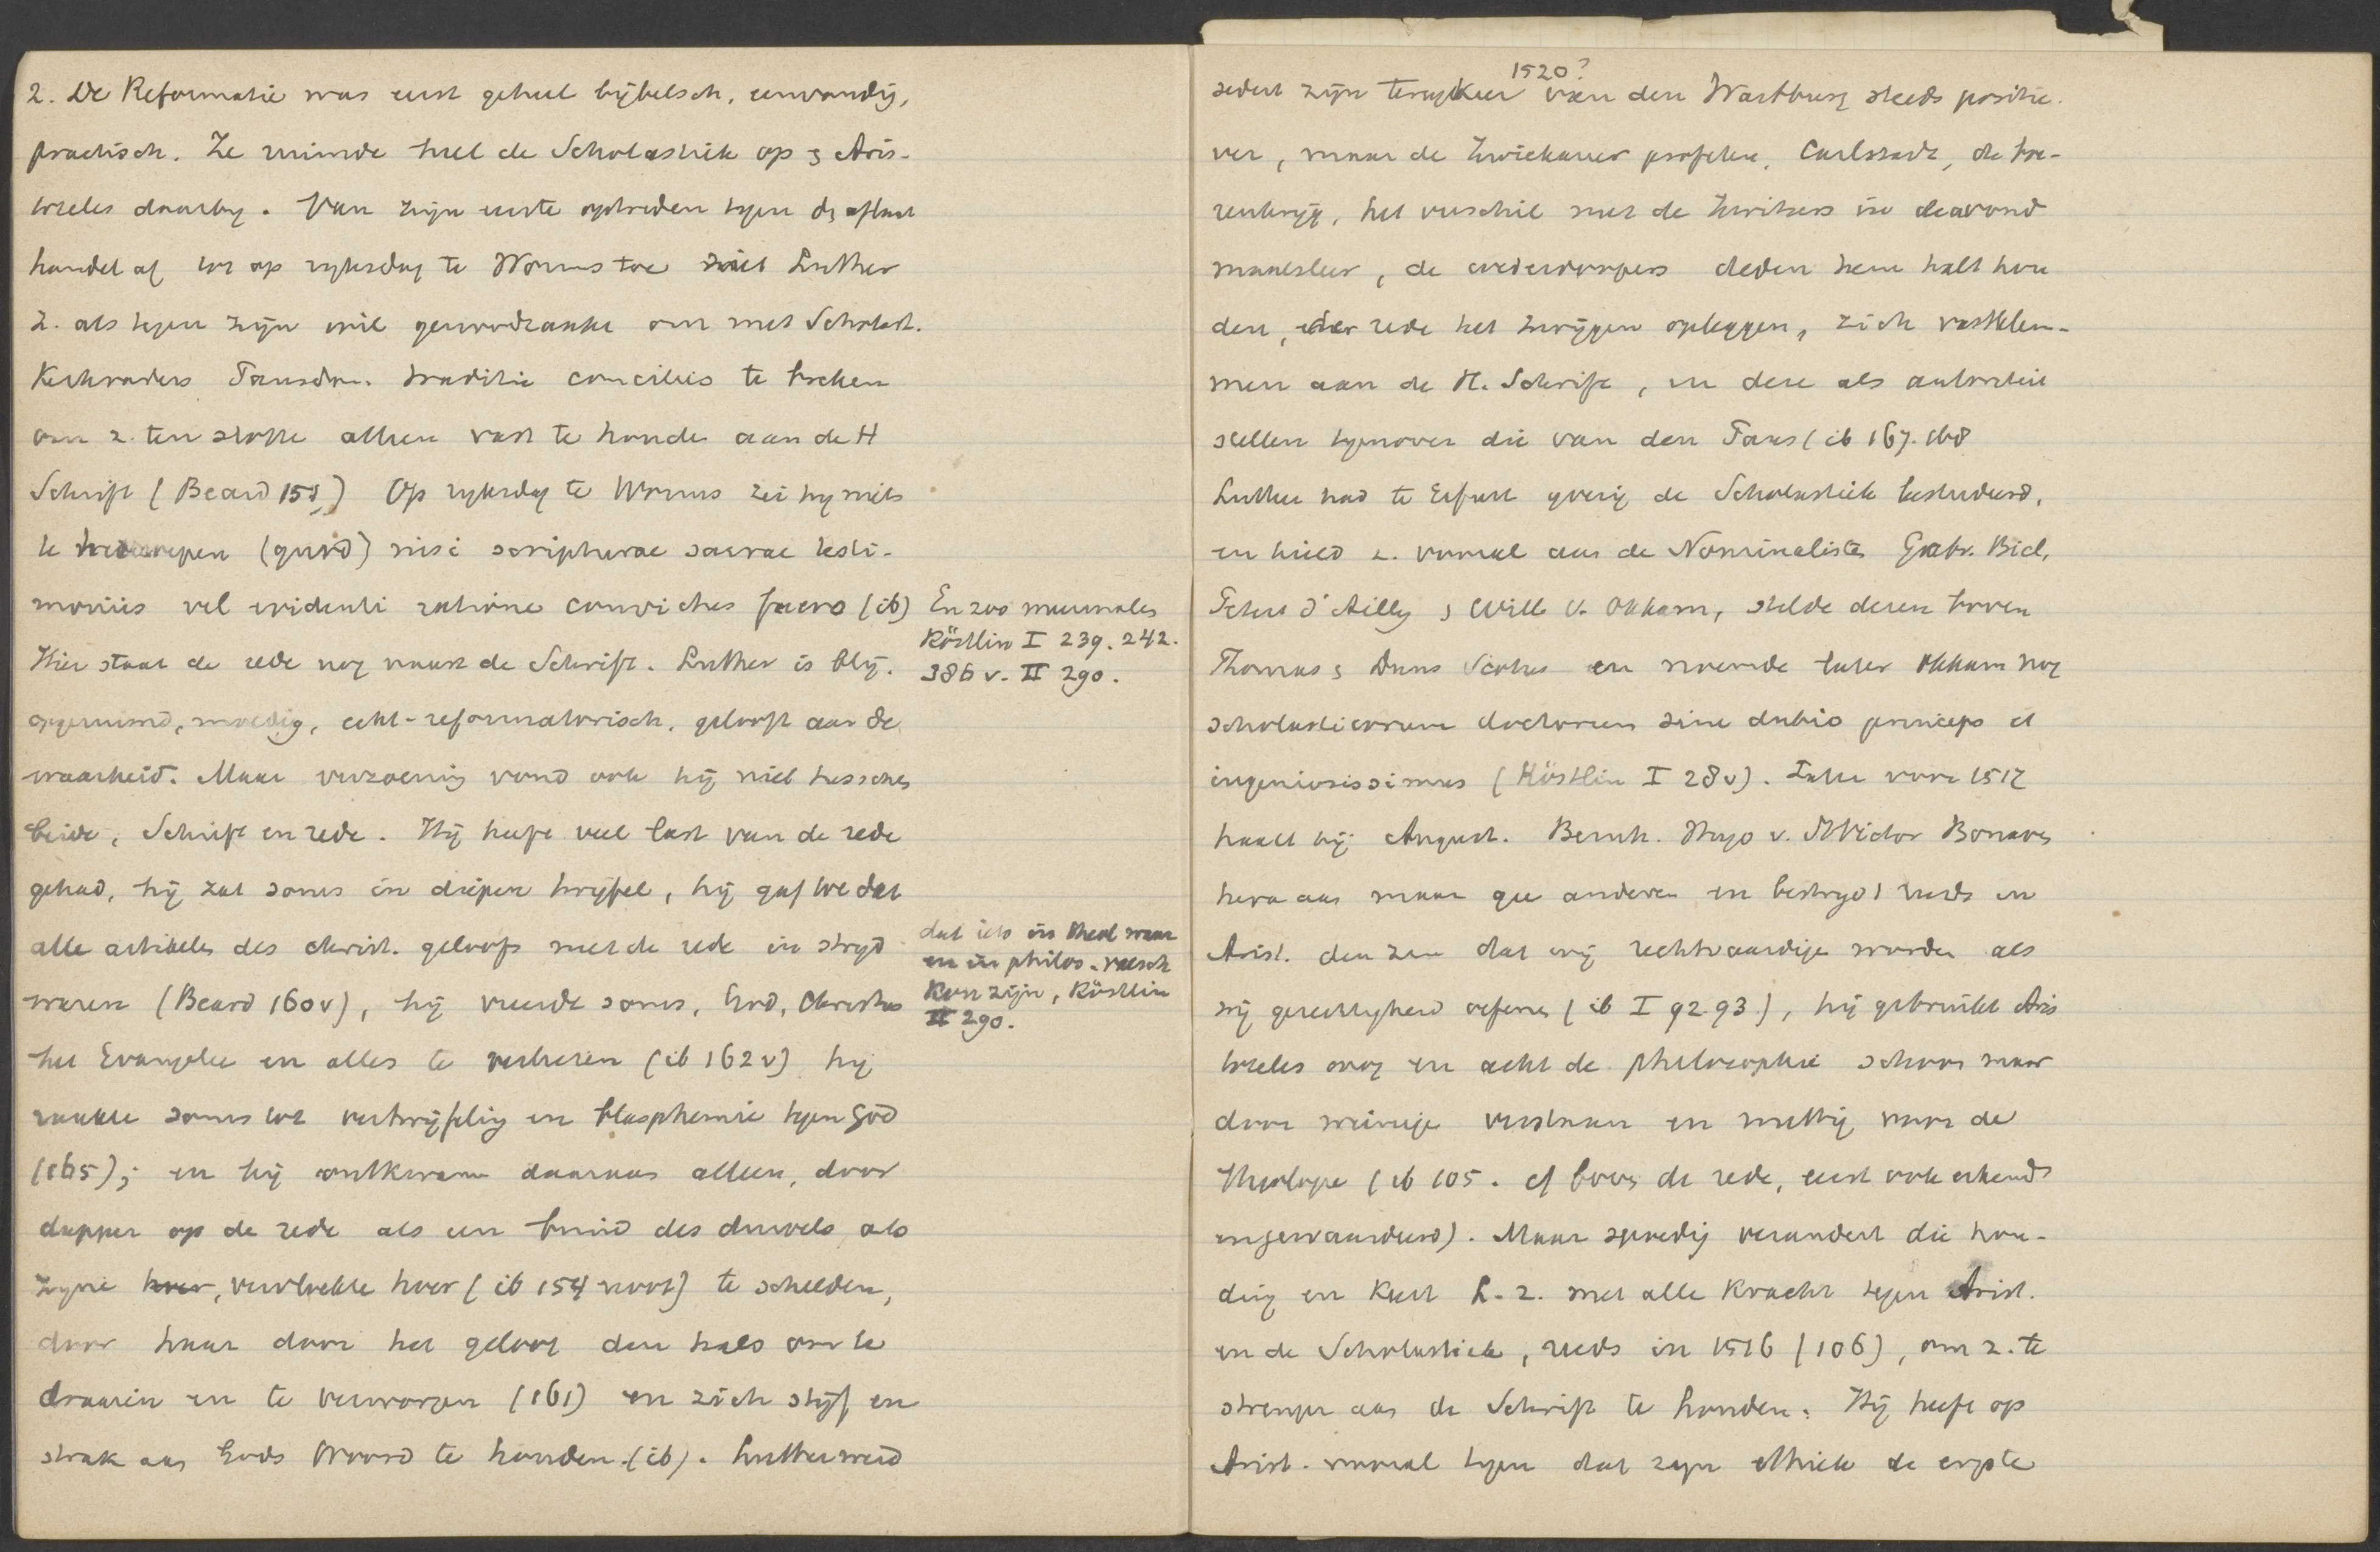 2. De Reformatie was eerst geheel bijbelsch, eenvoudig,
practisch. Ze ruimde heel de Scholastiek op & Aris-
toteles daarbij. Van zijn eerste optreden tegen de aflaat
handel af tot op rijksdag te Worms toe Luther
z. als tegen zijn wil genoodzaakt om met Scholast.
Kerkvaders Pausdom. traditie concilies te breken
om z. ten slotte alleen vast te houden aan de H
Schrift (Beard 158) Op rijksdag te Worms zei hij niets
te herroepen (quod) nisi scripturae sacrae testi-
moniis vel evidenti ratione convictus fuero (ib)
Hier staat de rede nog naast de Schrift. Luther is blij.
opgeruimd, moedig, echt-reformatorisch, gelooft aan de
waarheid. Maar verzoening vond ook hij niet tusschen
beide, Schrift en rede. Hij heeft veel last van de rede
gehad, hij zat soms in diepen twijfel, hij gaf toe dat
alle artikelen des christ. geloofs met de rede in strijd
waren (Beard 160v), hij vreesde soms, God, Christus
het Evangelie en alles te verliezen (ib 162v) hij
raakte soms tot vertwijfeling en blasphemie tegen God
(165); en hij ontkwam daaraan alleen, door
dapper op de rede als een bruid des duivels als
zijne hoer, vervloekte hoer (ib 154 noot) te schelden,
door haar door het geloof den hals om te
draaien en te verworgen (161) en zich stijf en
strak aan Gods Woord te houden (ib). Luther werd
En zoo meermalen
Köstlin I 239. 242.
386 v. II 290.
dat iets in theol waar
en in philos. valsch
kon zijn, Köstlin
II 290.
1520?
sedert zijn terugkeer van den Wartburg steeds positie-
ver, maar de Zwickauer profeten, Carlstadt, de boe-
renkrijg, het verschil met de Zwitsers in de avond
maalsleer, de wederdoopers deden hem halt hou
den, de rede het zwijgen opleggen, zich vastklem-
men aan de H. Schrift, en deze als autoriteit
stellen tegenover die van den Paus (ib 167. 168
Luther had te Erfurt ijverig de Scholastiek bestudeerd,
en hield z. vooral aan de Nominalisten Gabr. Biel,
Peter d'Ailly & Will v. Okkam, stelde dezen boven
Thomas & Duns Scotus en noemde later Okkam nog
scholasticorum doctorum sine dubio princeps et
ingeniosissimus (Köstlin I 28v). Later voor 1517
haalt hij August. Bernh. Hugo v. St Victor Bonaven
tura aan maar geen anderen en bestrijdt reeds in
Arist. den zin dat wij rechtvaardige worden als
wij gerechtigheid oefenen (ib I 92. 93), hij gebruikt Aris
toteles nog en acht de philosophie schoon maar
door weinige verstaan en nuttig voor de
Theologie (ib 105. cf boven de rede, eerst ook erkend
en gewaardeerd). Maar spoedig verandert die hou-
ding en keert L. z. met alle kracht tegen Arist.
en de Scholastiek, reeds in 1516 (106), om z. te
strenger aan de Schrift te houden. Hij heeft op
Arist. vooral tegen dat zijn ethiek de ergste